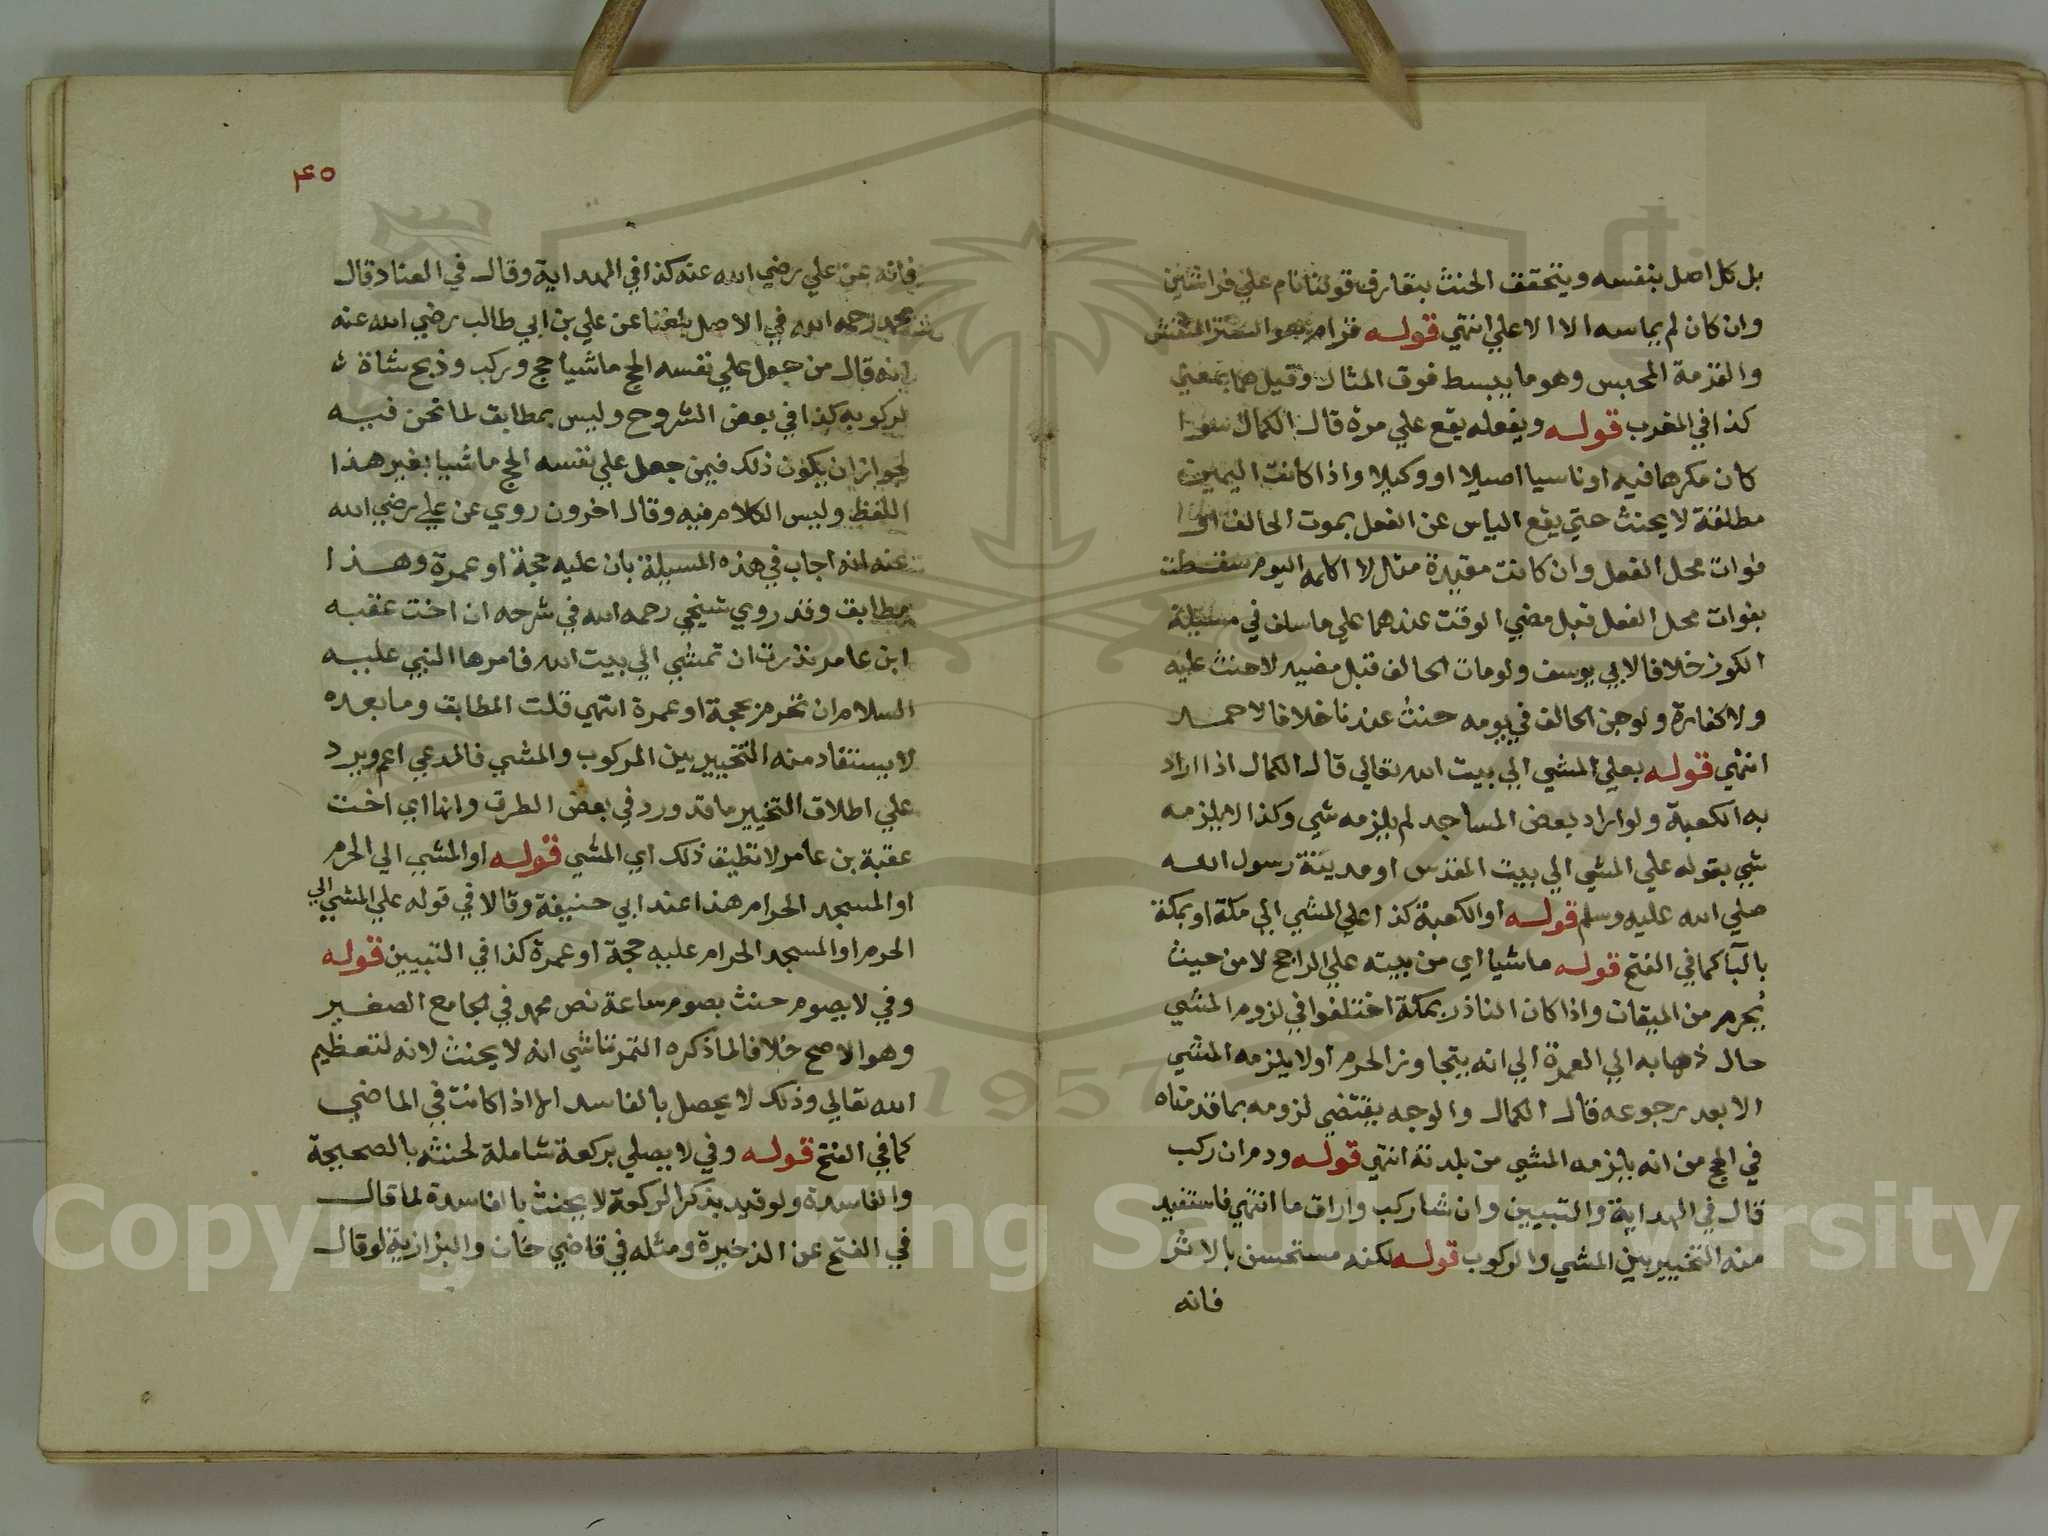 بل كل اصل بنفسه ويتحقق الحنث بتعارف قولنا نام علي فراشين
وان كان لم يماسه الا الاعلي انتهي قوله قرام هو الستر المنقش
والقرمة المحبس وهو ما يبسط فوق المثال وقيل هما بمعني
كذا في المغرب قوله ويفعله يقع علي مرة قال الكمال سوا
كان مكرها فيه او ناسيا اصيلا او وكيلا واذا كانت اليمين
مطلقة لا يحنث حتي يقع الياس عن الفعل بموت الحالف او
فوات محل الفعل وان كانت مقيدة مثال لا اكلمه اليوم سقطت
بفوات محل الفعل قبل مضي الوقت عندهما علي ما سلف في مسئلة
الكوز خلافا لابي يوسف ولو مات الحالف قبل مضيه لا حنث عليه
ولا كفارة ولو جن الحالف في يومه حنث عندنا خلافا لاحمد
انتهي قوله بعلي المشي الي بيت الله تعالي قال الكمال اذا اراد
به الكعبة ولو اراد بعض المساجد لم يلزمه شي وكذا لا يلزمه
شي بقوله علي المشي الي بيت المقدس او مدينة رسول الله
صلي الله عليه وسلم قوله او الكعبة كذا علي المشي الي مكة او بمكة
بالبآ كما في الفتح قوله ماشيا اي من بيته علي الراجح لا من حيث
يُحرم من الميقات واذا كان الناذر بمكة اختلفوا في لزوم المشي
حال ذهابه الي العمرة الي انه يتجاوز الحرم او لا يلزمه المشي
الا بعد رجوعه قال الكمال والوجه يقتضي لزومه بما قدمناه
في الحج من انه يلزمه المشي من بلدته انتهي قوله ودم ان ركب
قال في الهداية والتبيين وان شا ركب واراق ما انتهي فاستفيد
منه التخيير بين المشي والركوب قوله لكنه مستحسن بالاثر
فانه
٤٥
فانه عن علي رضي الله عنه كذا في الهداية وقال في العنا‌د قال
محمد رحمه الله في الاصل بلغنا عن علي بن ابي طالب رضي الله عنه
انه قال من جعل علي نفسه الحج ماشيا حج وركب وذبح شاة
لركوبه كذا في بعض الشروح وليس بمطابق لما نحن فيه
لجواز ان يكون ذلك فيمن جعل علي نفسه الحج ماشيا بغير هذا
اللفظ وليس الكلام فيه وقال اخرون روي عن علي رضي الله
عنه انه اجاب في هذه المسيلة بان عليه حجة او عمرة وهذا
مطابق وقد روي شيخي رحمه الله في شرحه ان اخت عقبه
ابن عامر نذرت ان تمشي الي بيت الله فامرها النبي عليه
السلام ان تحرم بحجة او عمرة انتهي قلت المطابق وما بعده
لا يستفاد منه التخيير بين الركوب والمشي فالمدعي اعم ويرد
علي اطلاق التخيير ما قد ورد في بعض الطرق وانها اي اخت
عقبة بن عامر لا تطيق ذلك اي المشي قوله او المشي الي الحرم
او المسجد الحرام هذا عند ابي حنيفة وقالا في قوله علي المشي الي
الحرم او المسجد الحرام عليه حجة او عمرة كذا في التبيين قوله
وفي لا يصوم حنث بصوم ساعة نص محمد في الجامع الصغير
وهو الاصح خلافا لما ذكره التمرتاشي انه لا يحنث لانه لتعظيم
الله تعالي وذلك لا يحصل بالفاسد الا اذا كانت في الماضي
كما في الفتح قوله وفي لا يصلي بركعة شاملة لحنثه بالصحيحة
والفاسدة ولو قيد بذكر الركعة لا يحنث بالفاسدة لما قال
في الفتح عن الذخيرة ومثله في قاضي خان والبزازية لو قال
1957
Copyright © King Saud University